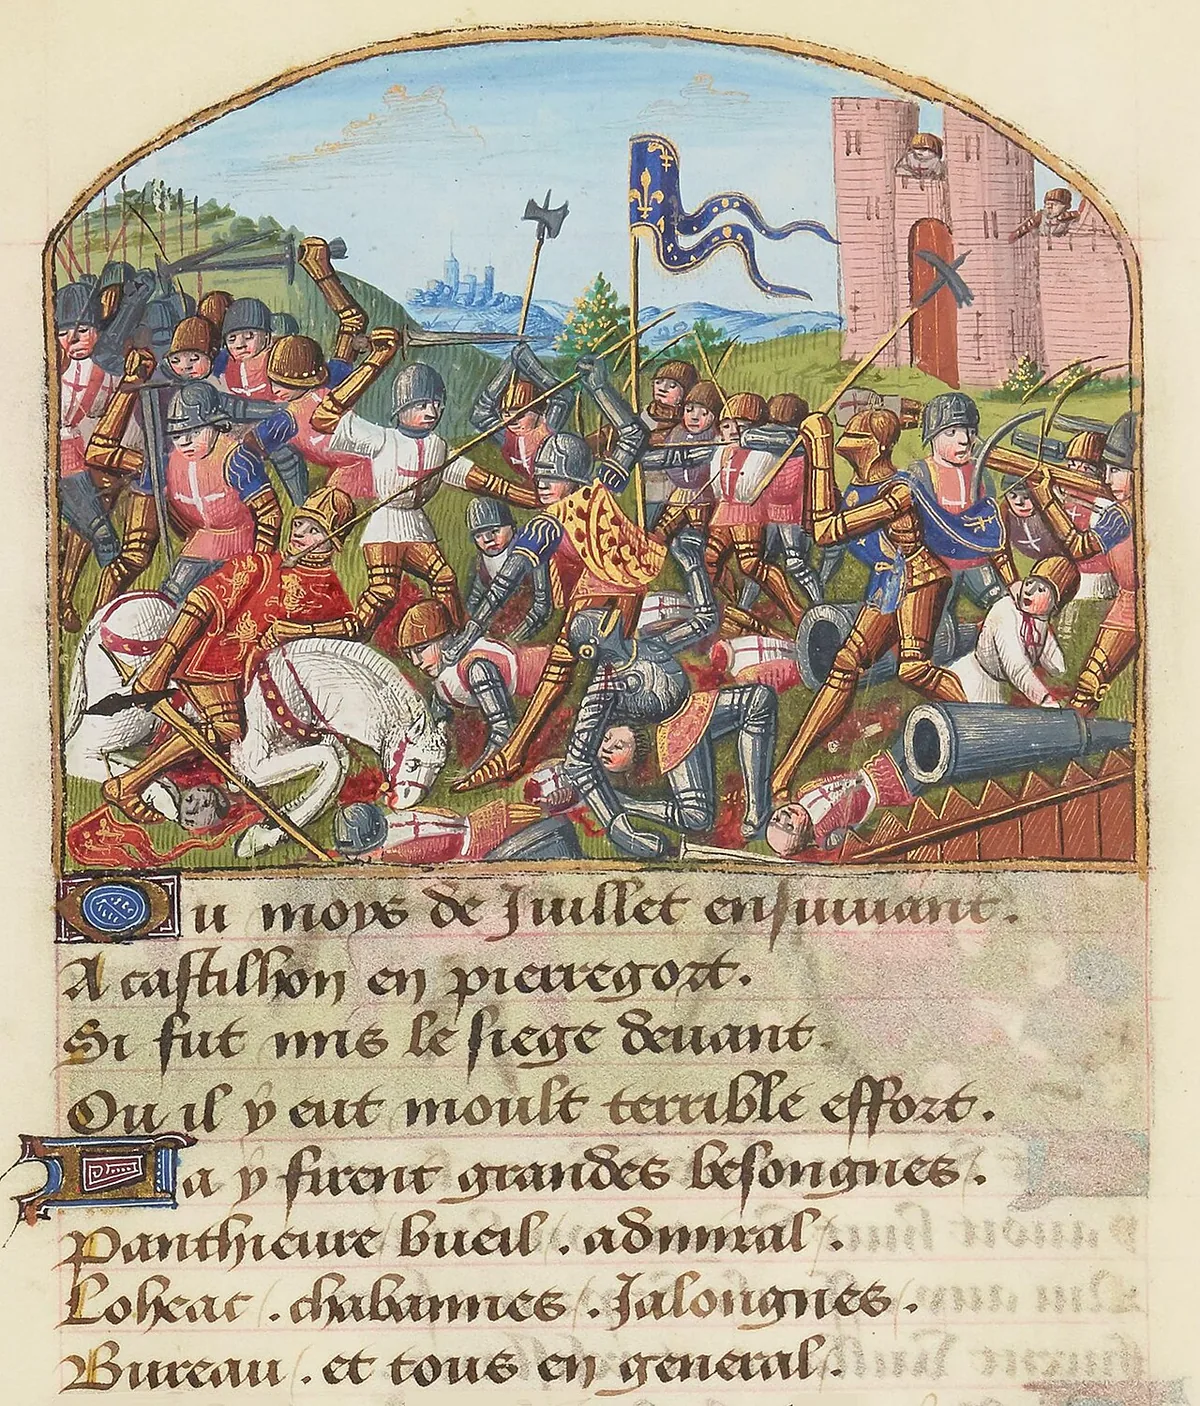 Ou moys de Juillet ensuiuant.
A castillon en pierregort.
Si fut mis le siege deuant.
Ou il y eut moult terrible effort.
La y firent grandes besongnes.
Panthieure bueil. admiral.
Loheac. chabannes. Jalongnes.
Bureau. et tous en general.